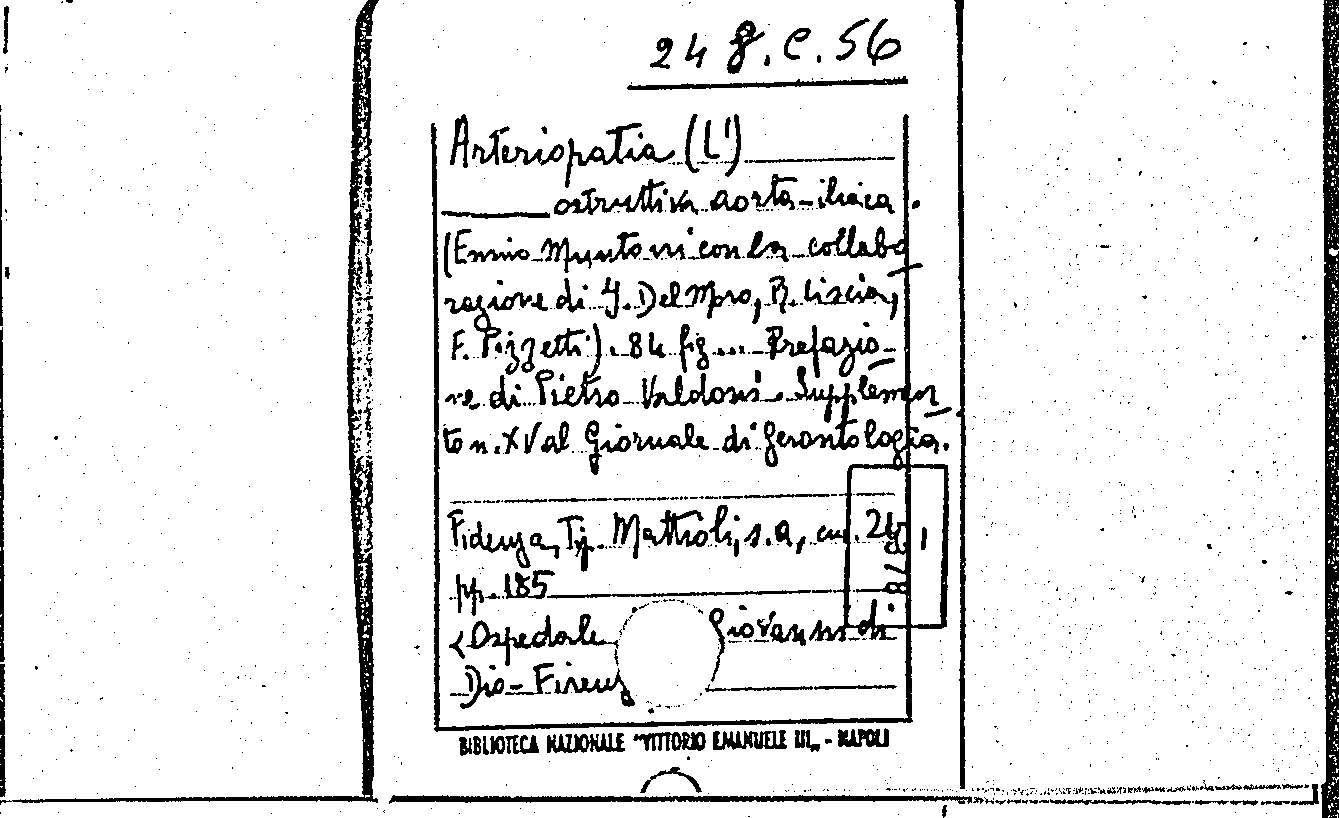 24 g. C. 56
Arteriopatia (L')
ostruttiva aorta-iliaca.
(Ennio Muntoni con la collabo
razione di G. Del Moro, R. Liscia,
F. Pizzetti). 84 fig... Prefazio-
ne di Pietro Valdoni. Supplemen
to n. XV al Giornale di gerontologia.
Fidenza, Tip. Mattioli, s.a, cm. 24,
pp. 185
<Ospedale Giovanni di
Dio - Firenz
BIBLIOTECA NAZIONALE "VITTORIO EMANUELE III„ - NAPOLI